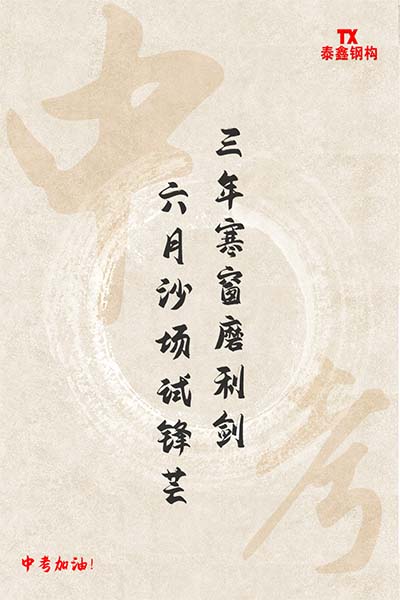 TX
泰鑫钢构
中考
三年寒窗磨利剑
六月沙场试锋芒
中考加油!